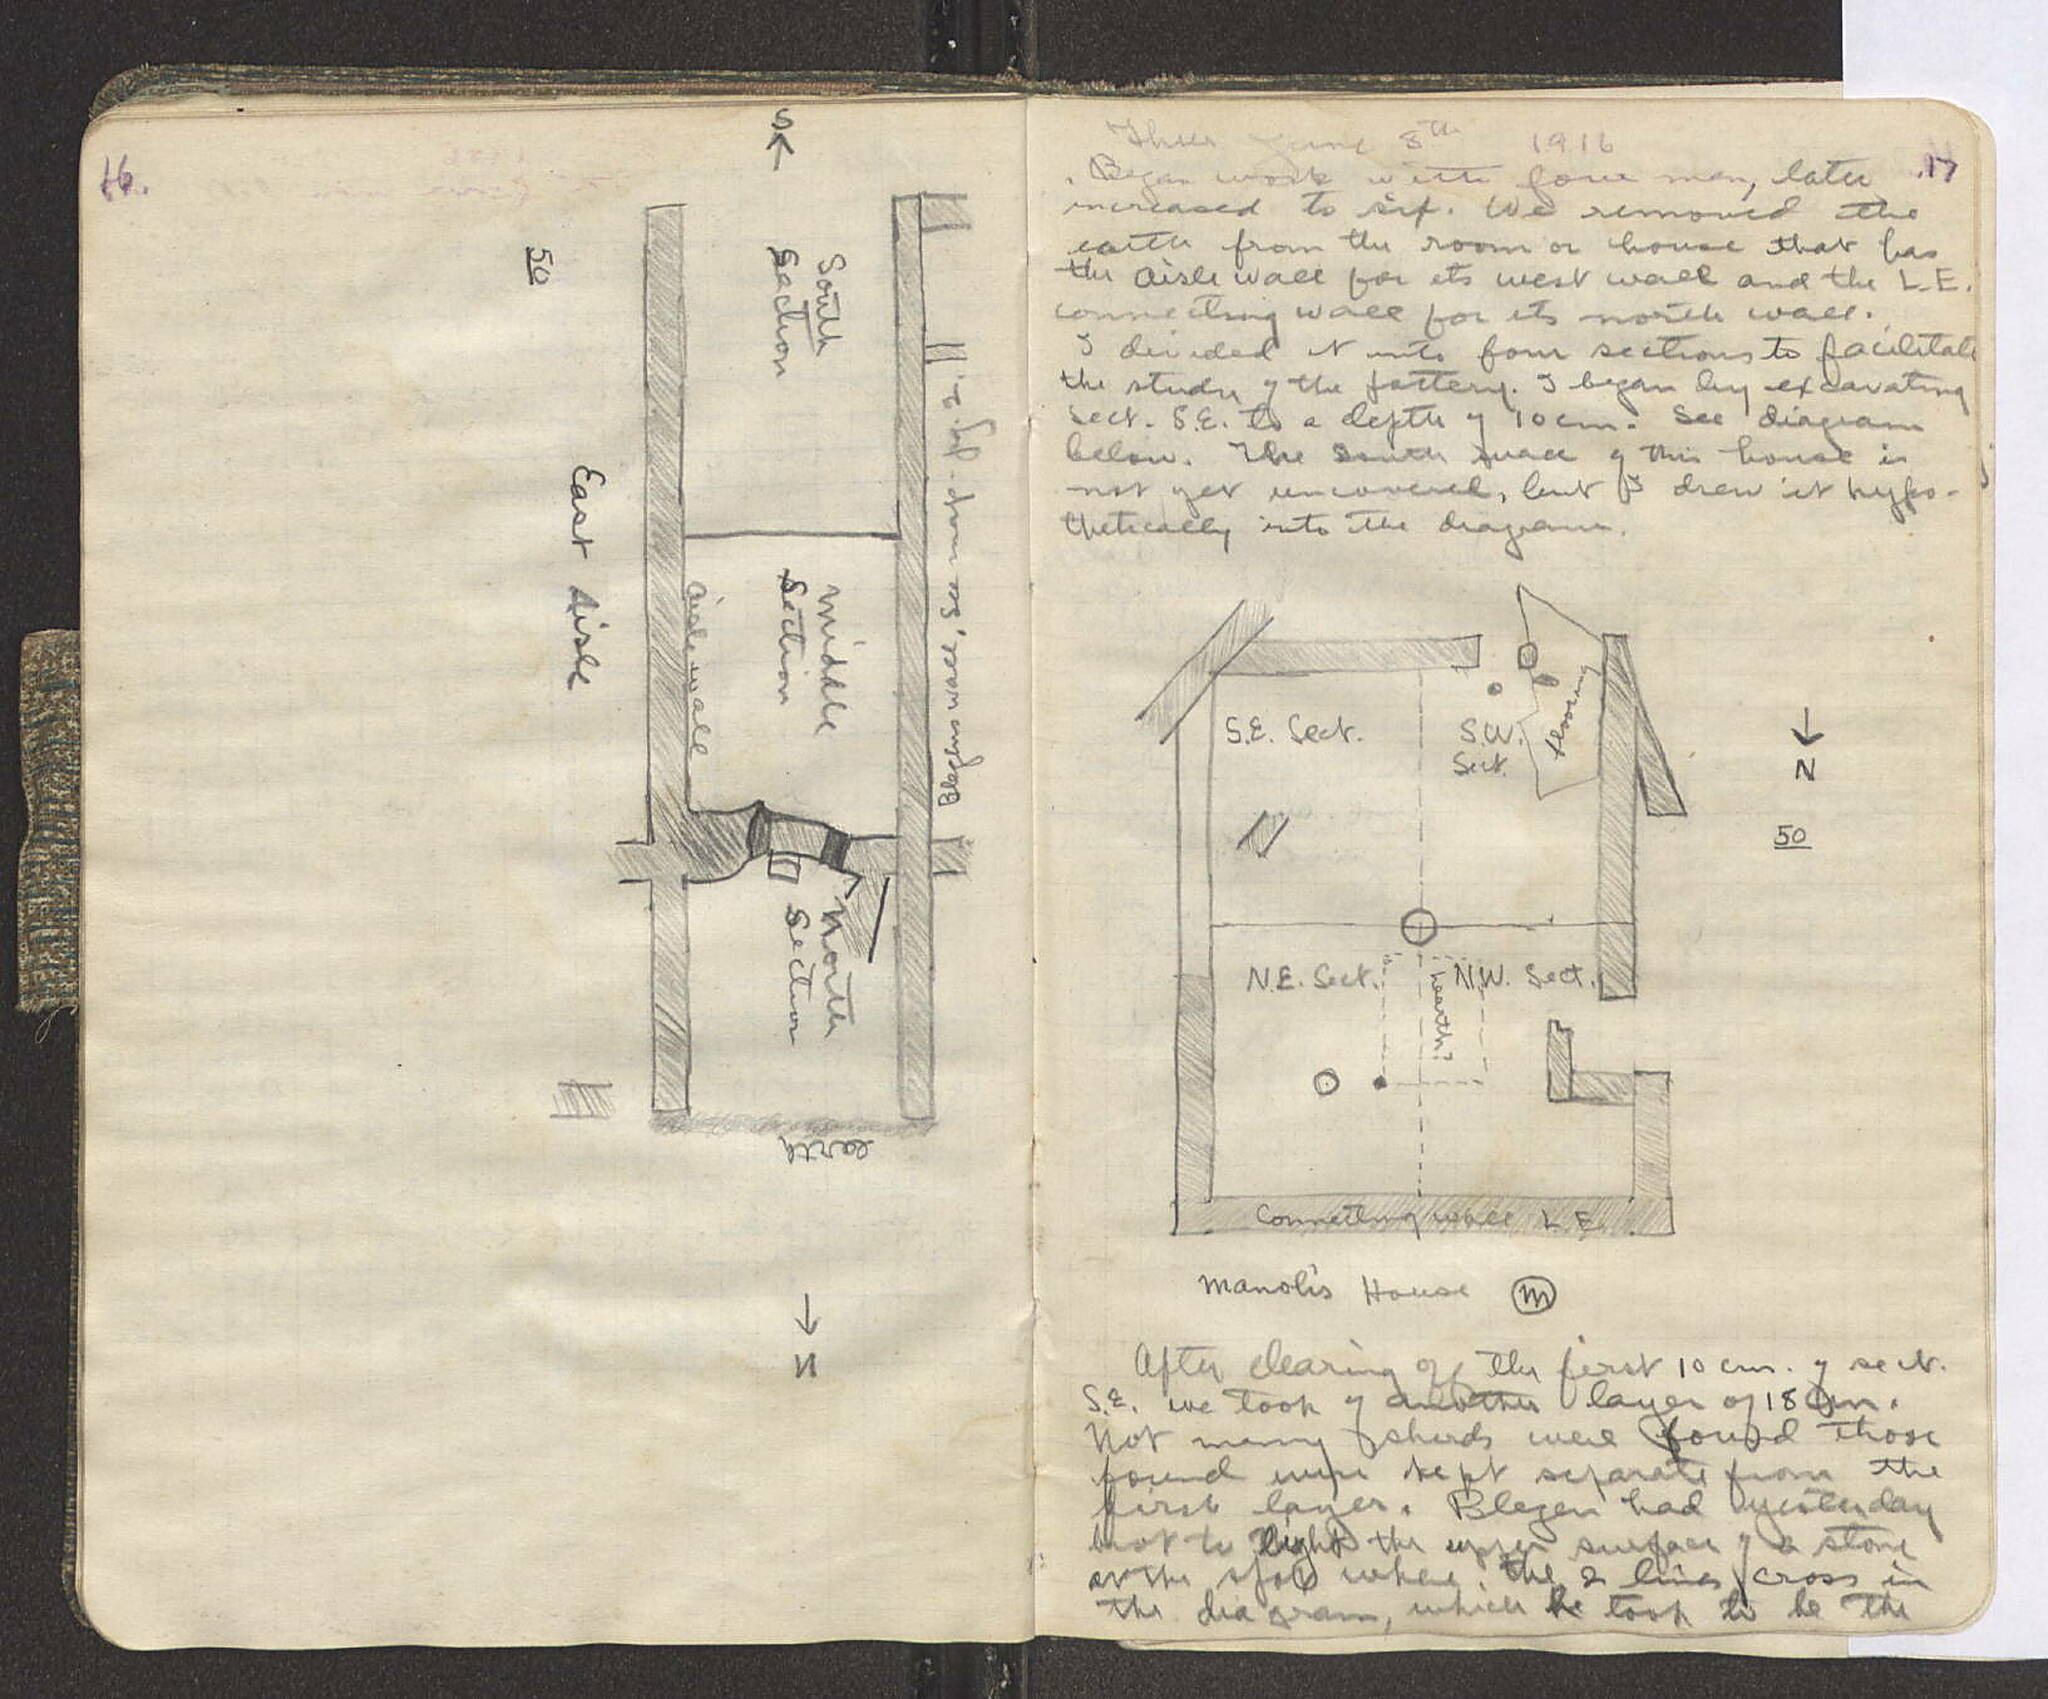 16.
S
50
South
Section
East Aisle
middle
Section
aisle wall
Blegens wall, See next page p. 2.
North
Section
earth
N
Thur June 8th 1916
17
Began work with four men, later
increased to six. We removed the
earth from the room or house that has
the aisle wall for its west wall and the L.E.
connecting wall for its north wall.
I divided it into four sections to facilitate
the study of the pottery. I began by excavating
Sect. S.E. to a depth of 10 cm. See diagram
below. The South wall of this house is
not yet uncovered, but I drew it hypo-
thetically into the diagram.
S.E. Sect.
S.W.
Sect.
flooring
N
50
N.E. Sect.
hearth?
N.W. Sect.
Connecting wall L.E.
Manolis House M
After clearing off the first 10 cm. of sect.
S.E. we took off another layer of 18 cm.
Not many sherds were found those
found were kept separate from the
first layer. Blegen had yesterday
brot to light the upper surface of a stone
at the spot where the 2 lines cross in
the diagram, which he took to be the